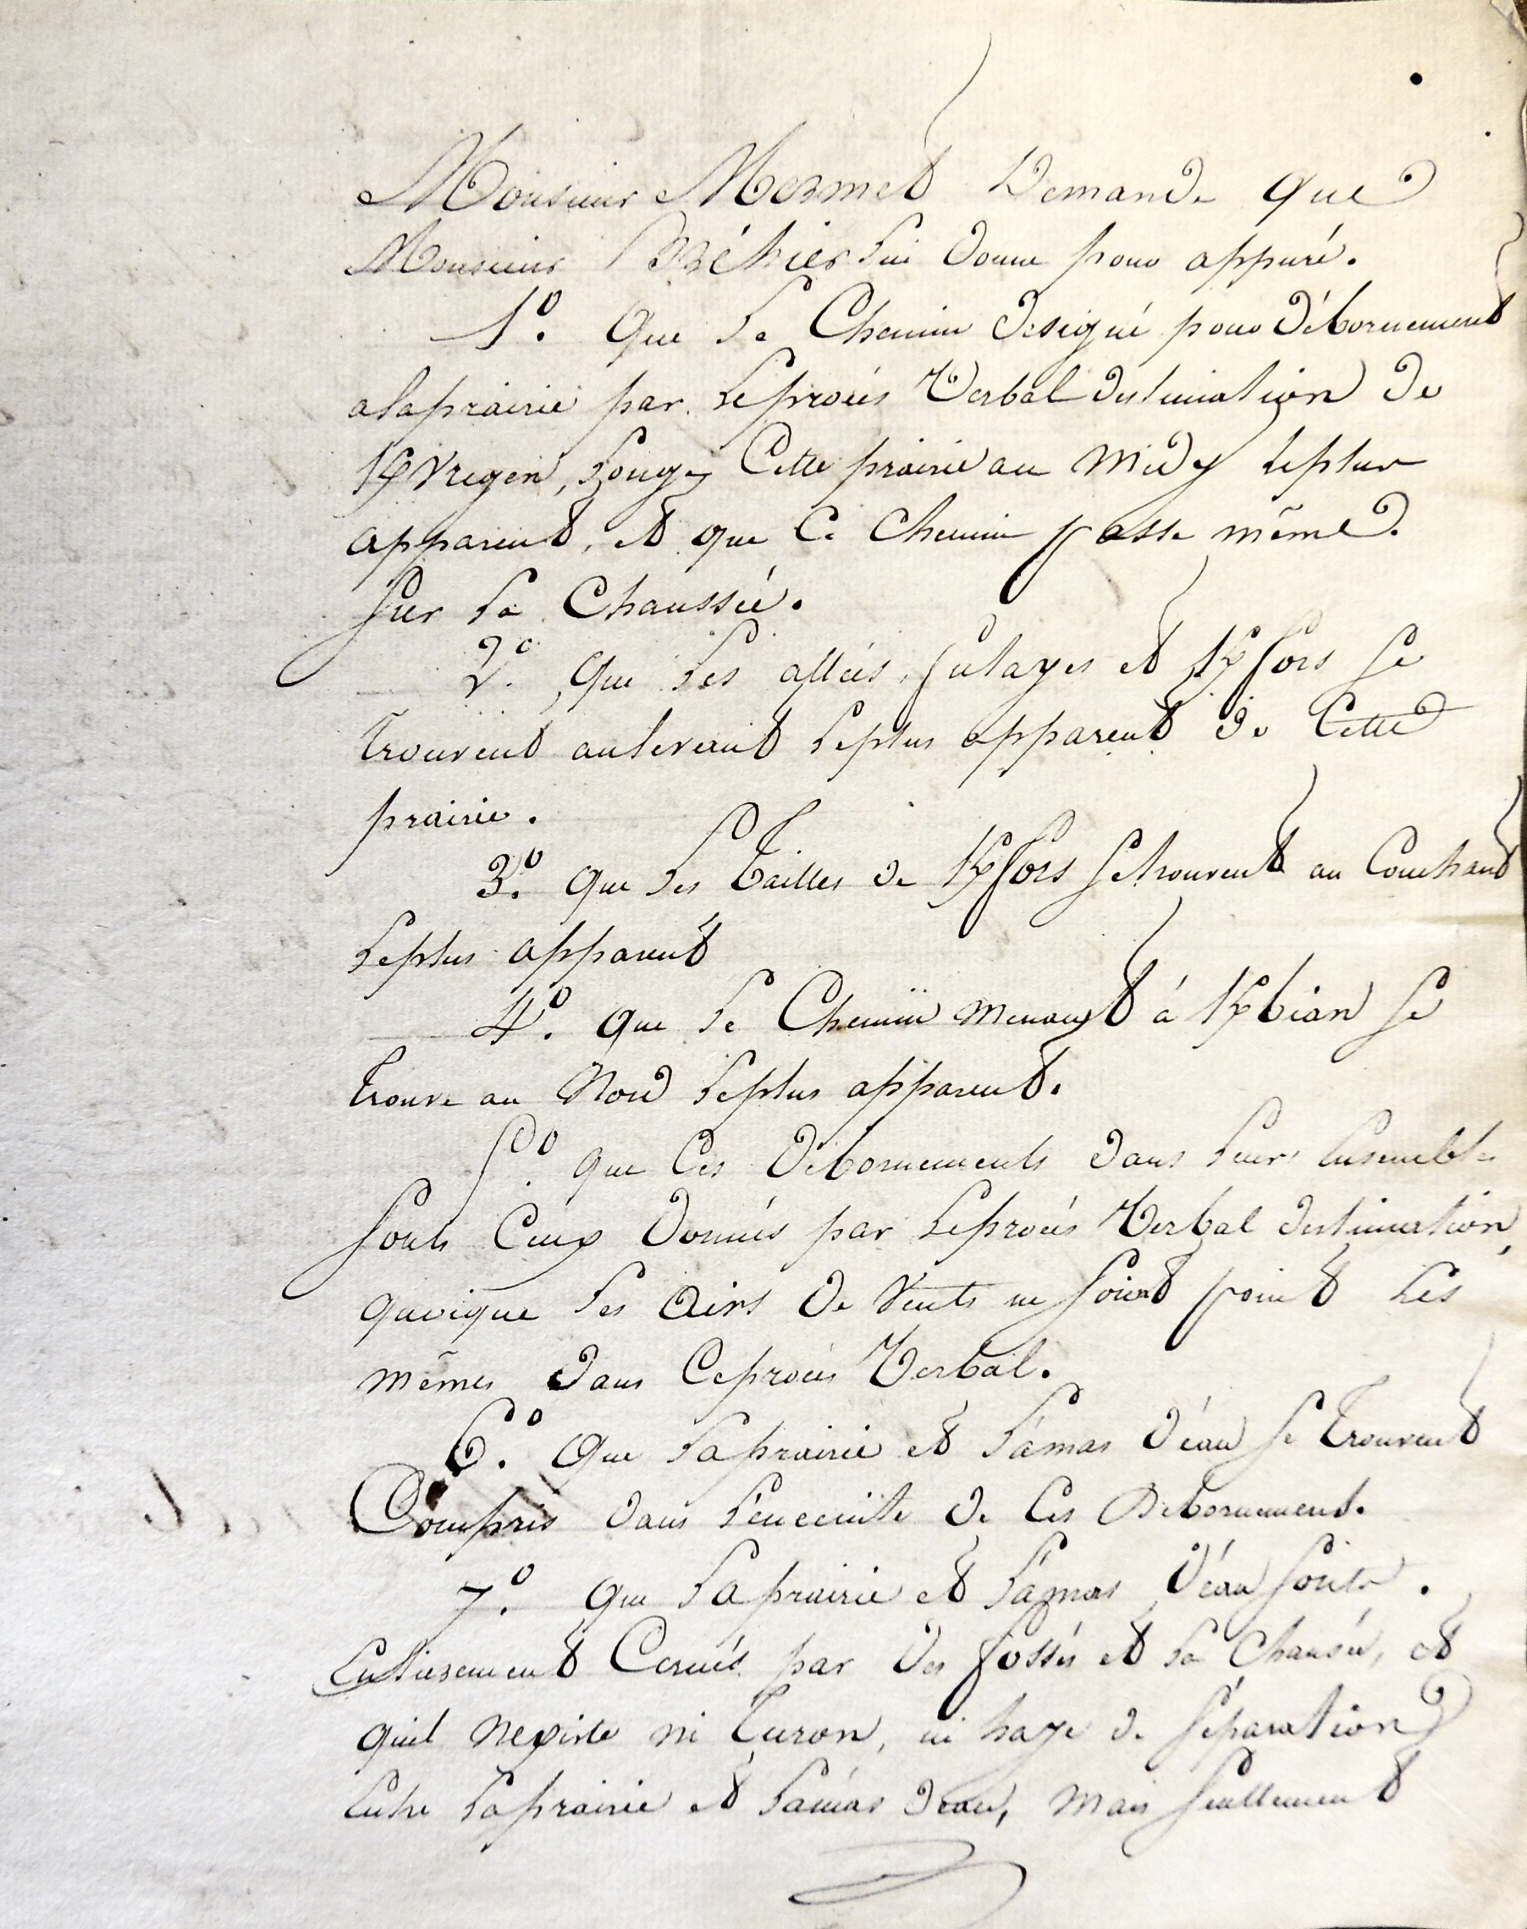 Monsieur Mermet Demande que
Monsieur Bréhier lui donne pour appuré.
1º. Que le Chemin designé pour débornement
alaprairie par leprocés Verbal destimation de
Kvregen, Longe Cette prairie au Midy leplus
apparent, et que Ce Chemin passe même
sur la Chaussée.
2º. Que les allées, futayes et Kfors se
trouvent aulevant leplus apparent de Cette
prairie.
3º. que les Tailles de Kfors setrouvent au Couchant
leplus apparent
4º. que le Chemin menant á Kbian se
trouve au Nord leplus apparent.
5º. que Ces débornements dans leur Ensemble
sonts Ceux donnés par leprocés Verbal destimation,
quoique les airs de Vents ne soient point les
mêmes dans Ceprocés Verbal.
6º. Que laprairie et lámas déau se trouvent
Compris dans l'enceinte de Ces Débornement.
7º. que laprairie et lámas déau sonts
Entierement Cernés par des fossés et la Chausée, et
quil nexiste ni Turon, ni haye de séparation
Entre laprairie et lámas deau, mais seullement